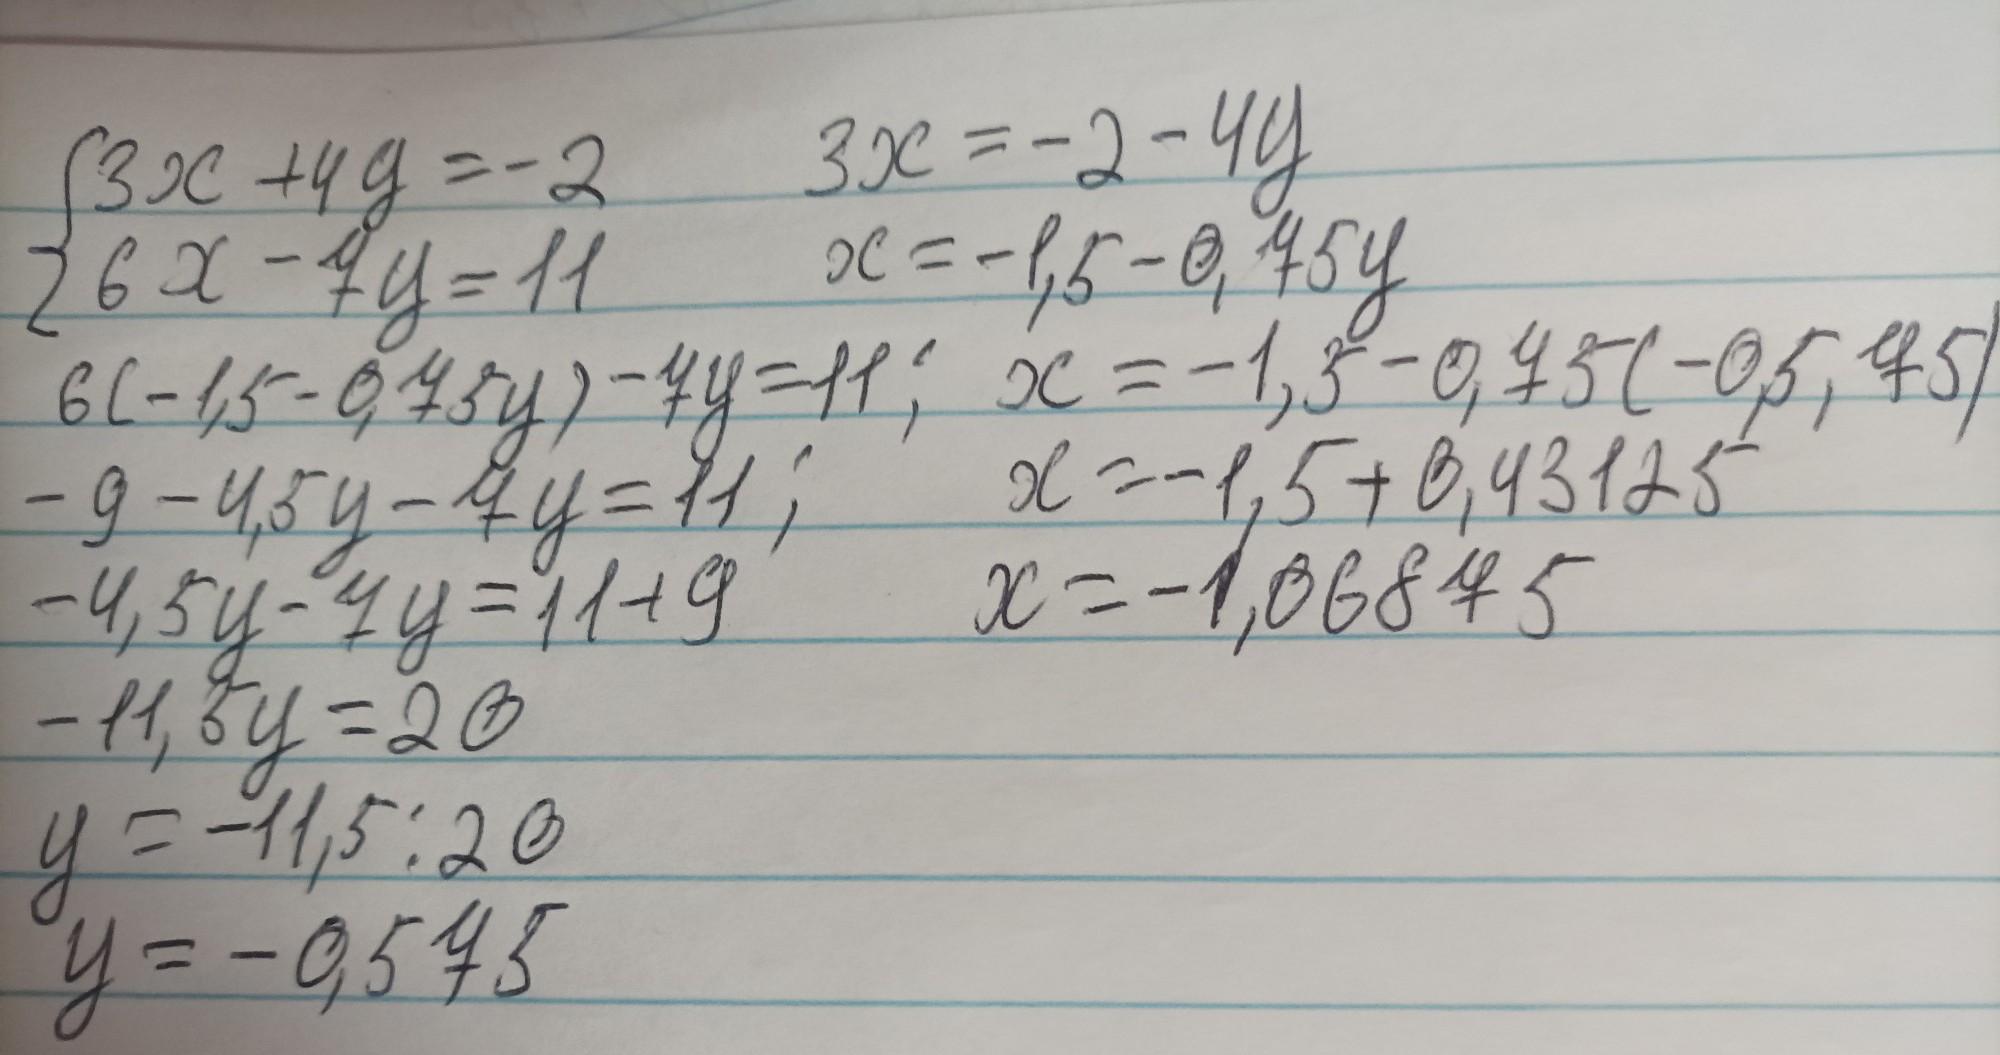 3x + 4y = -2
6x - 7y = 11
6(-1,5 - 0,75y) - 7y = 11;
-9 - 4,5y - 7y = 11;
-4,5y - 7y = 11 + 9
-11,5y = 20
y = -11,5 : 20
y = -0,575
3x = -2 - 4y
x = -1,5 - 0,75y
x = -1,5 - 0,75(-0,5,75)
x = -1,5 + 0,43125
x = -1,06875